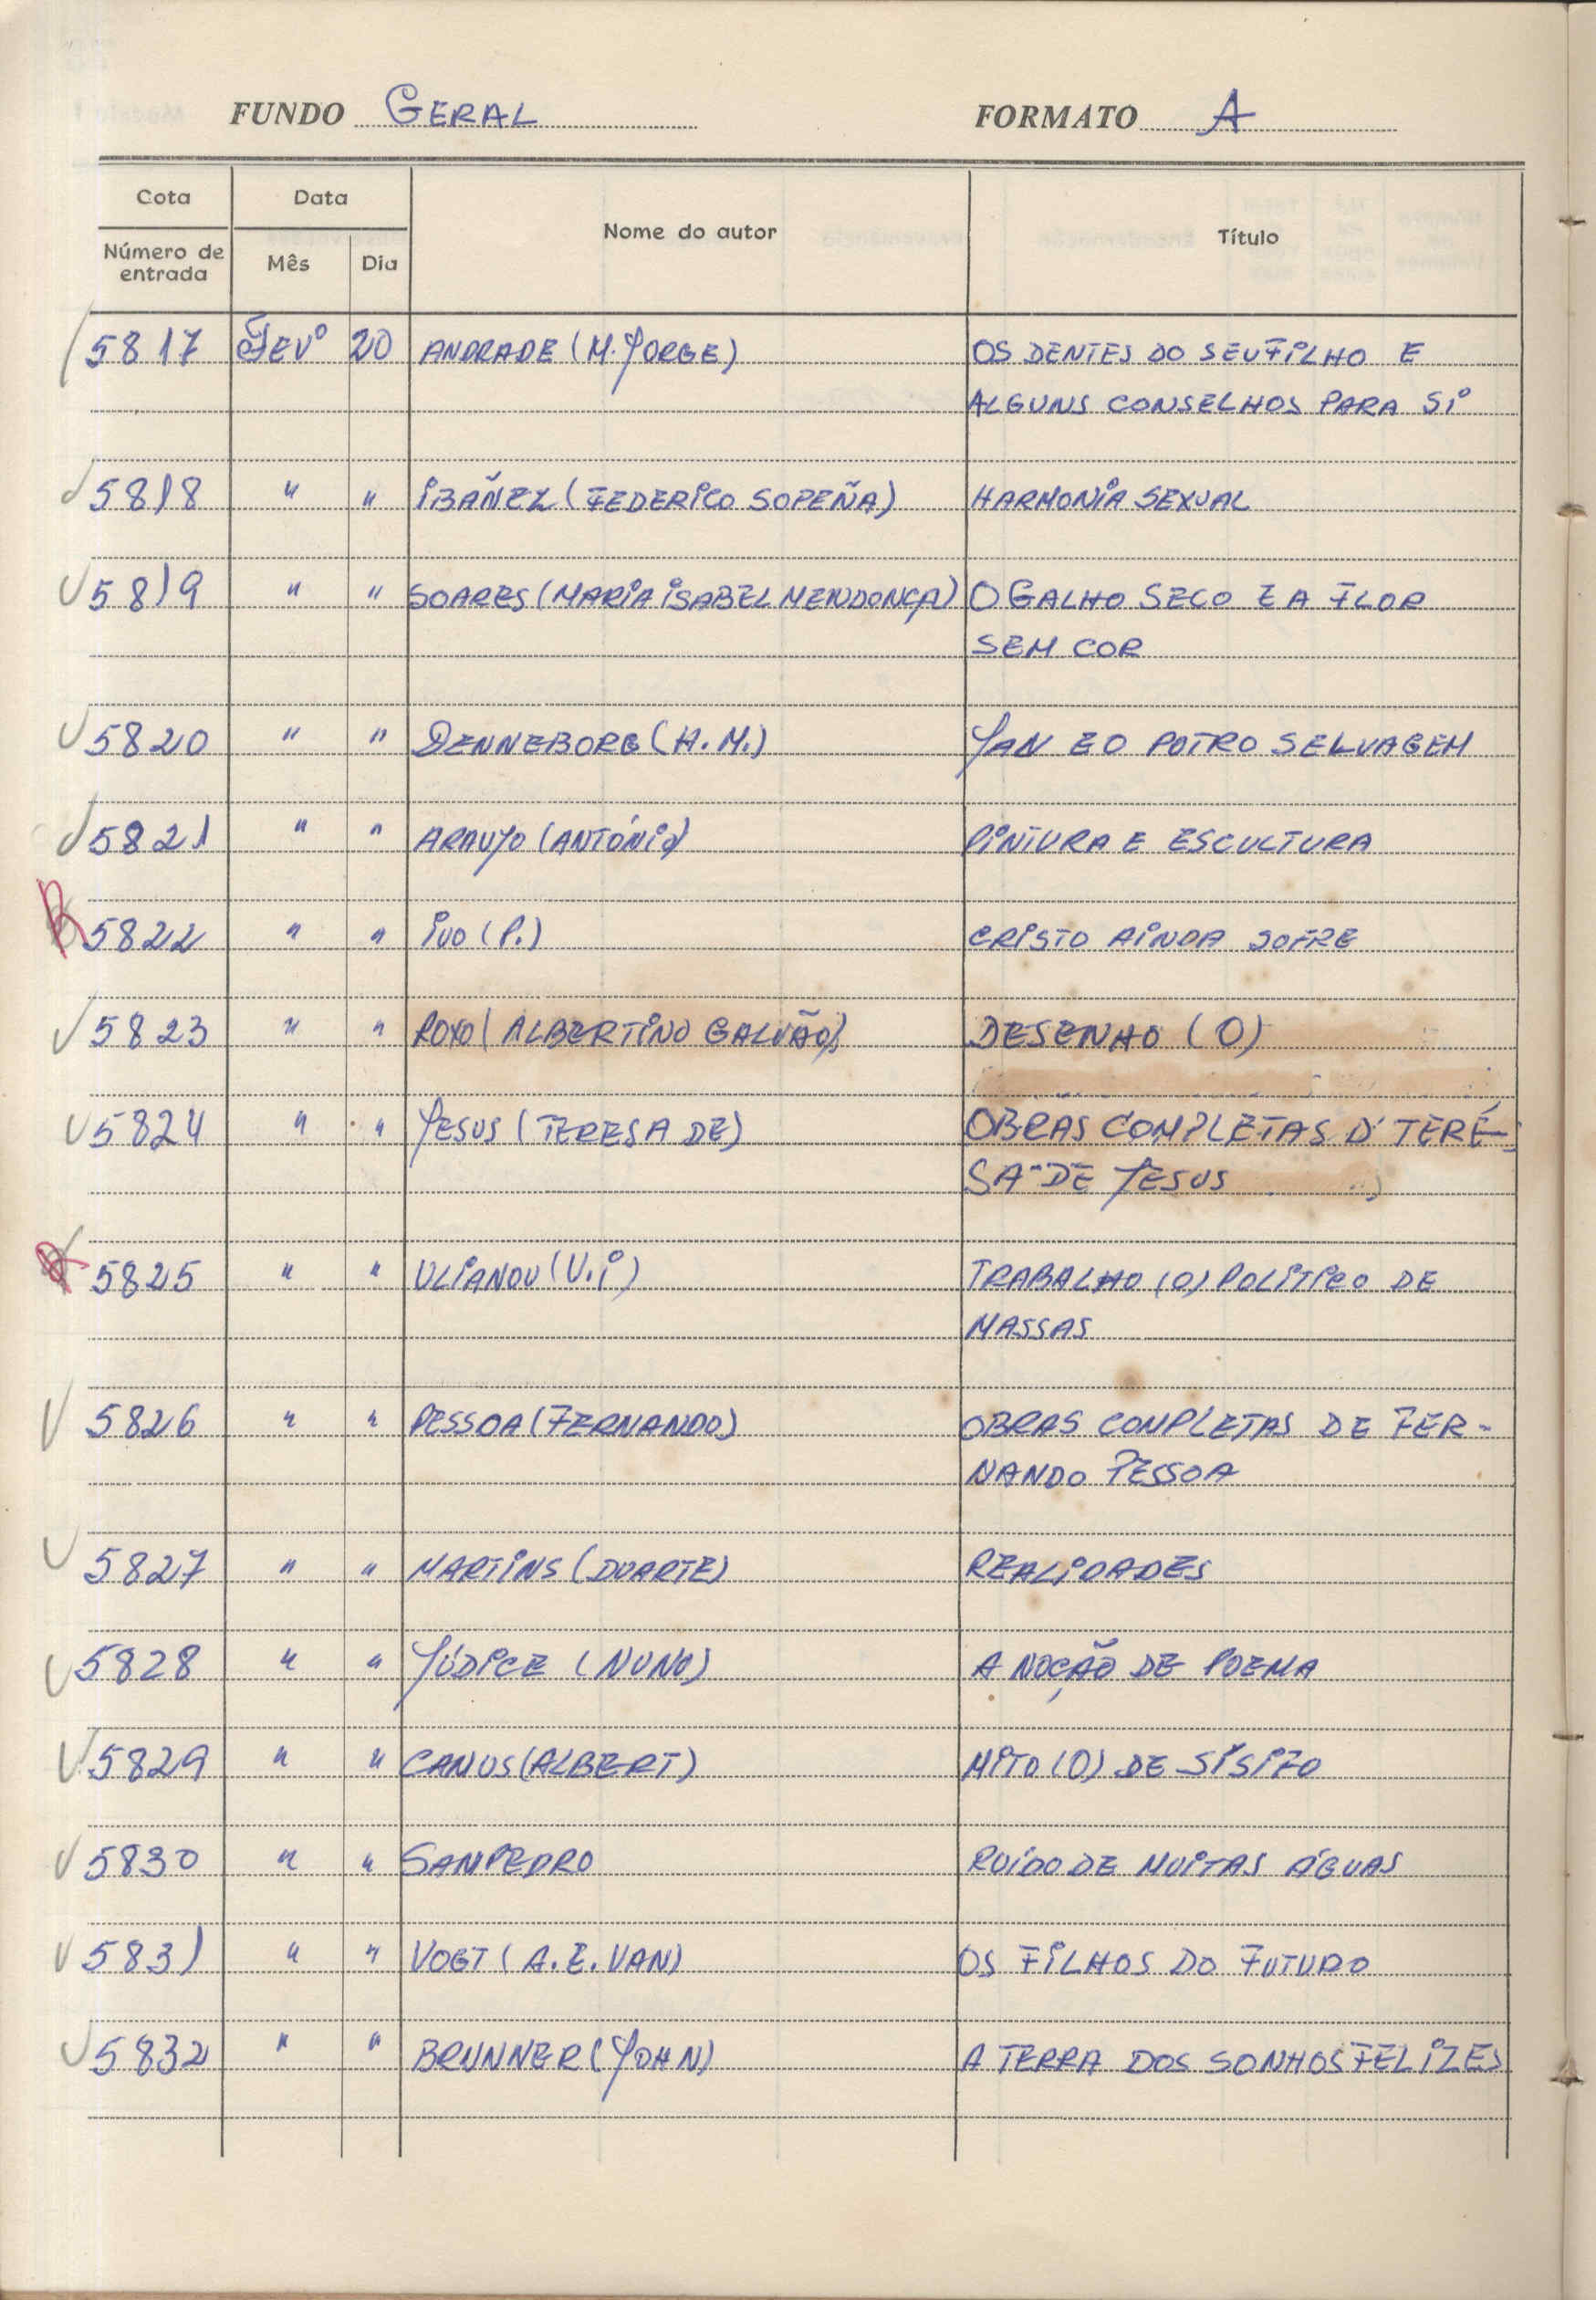 FUNDO GERAL FORMATO A
Cota Data Nome do autor Título
Número de entrada Mês Dia
5817 Fevº 20 ANDRADE (M. JORGE) OS DENTES DO SEU FILHO E
ALGUNS CONSELHOS PARA SI
5818 " " IBAÑEZ (FEDERICO SOPEÑA) HARMONIA SEXUAL
5819 " " SOARES (MARIA ISABEL MENDONÇA) O GALHO SECO E A FLOR
SEM COR
5820 " " DENNEBORG (H. M.) JAN E O POTRO SELVAGEM
5821 " " ARAUJO (ANTÓNIO) PINTURA E ESCULTURA
5822 " " IVO (P.) CRISTO AINDA SOFRE
5823 " " ROXO (ALBERTINO GALVÃO) DESENHO (O)
5824 " " JESUS (TERESA DE) OBRAS COMPLETAS D' TERÉ-
SA DE JESUS
5825 " " ULIANOV (V. I) TRABALHO (O) POLITICO DE
MASSAS
5826 " " PESSOA (FERNANDO) OBRAS COMPLETAS DE FER-
NANDO PESSOA
5827 " " MARTINS (DUARTE) REALIDADES
5828 " " JÚDICE (NUNO) A NOÇÃO DE POEMA
5829 " " CAMUS (ALBERT) MITO (O) DE SÍSIFO
5830 " " SAMPEDRO RUÍDO DE MUITAS ÁGUAS
5831 " " VOGT (A. E. VAN) OS FILHOS DO FUTURO
5832 " " BRUNNER (JOHN) A TERRA DOS SONHOS FELIZES